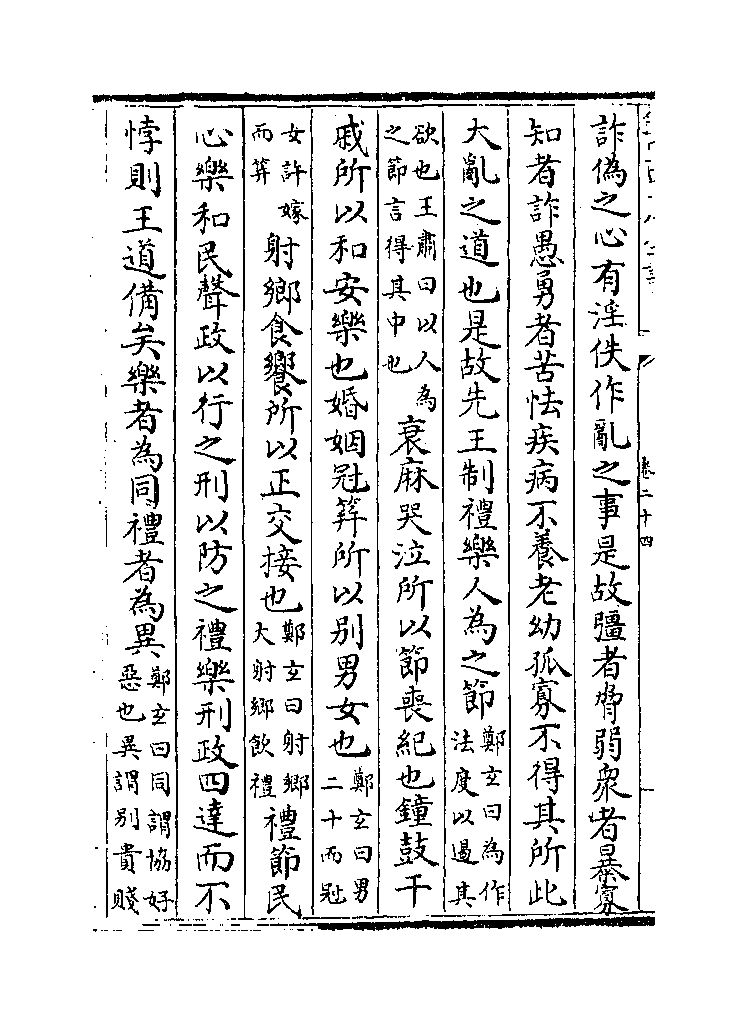 卷二十四
詐偽之心有淫佚作亂之事是故彊者脅弱衆者暴寡
知者詐愚勇者苦怯疾病不養老幼孤寡不得其所此
大亂之道也是故先王制禮樂人為之節鄭玄曰為作法度以遏其
欲也王肅曰以人為之節言得其中也衰麻哭泣所以節喪紀也鐘鼓干
戚所以和安樂也婚姻冠笄所以别男女也鄭玄曰男二十而冠
女許嫁而笄射鄉食饗所以正交接也鄭玄曰射鄉大射鄉飲禮禮節民
心樂和民聲政以行之刑以防之禮樂刑政四達而不
悖則王道備矣樂者為同禮者為異鄭玄曰同謂協好惡也異謂别貴賤